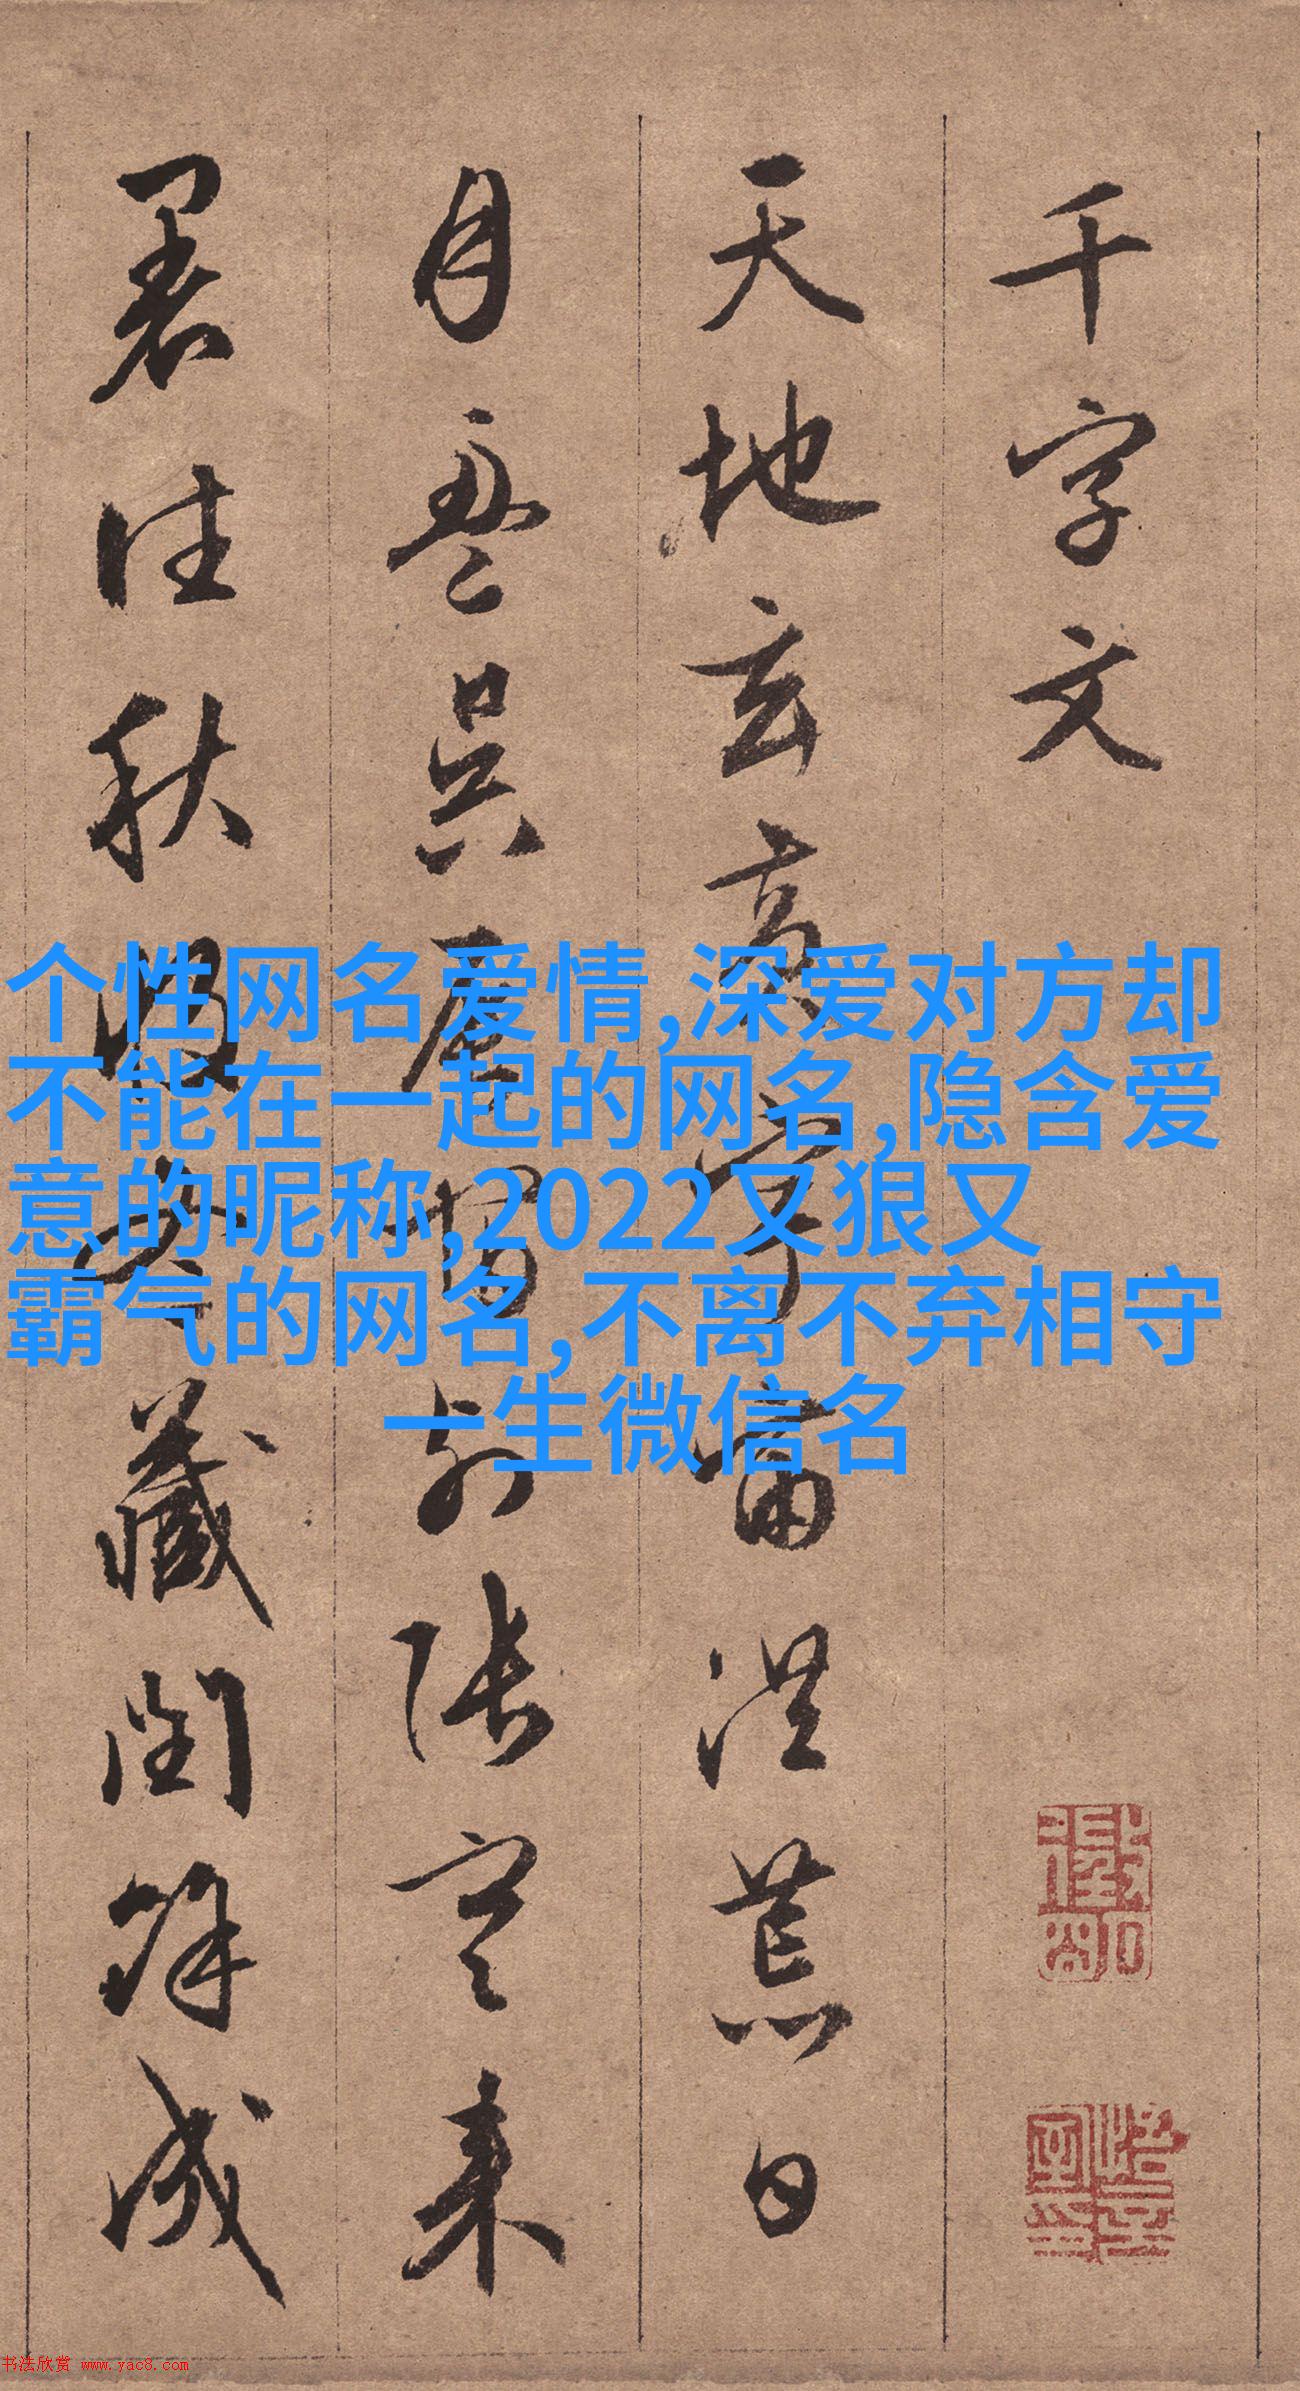 千字文
天地玄黃宇宙洪荒日
月盈昃辰宿列張寒來
暑往秋收冬藏閏餘成
个性网名爱情,深爱对方却
不能在一起的网名,隐含爱
意的昵称,2022又狠又
霸气的网名,不离不弃相守
一生微信名
书法欣赏 www.yac8.com